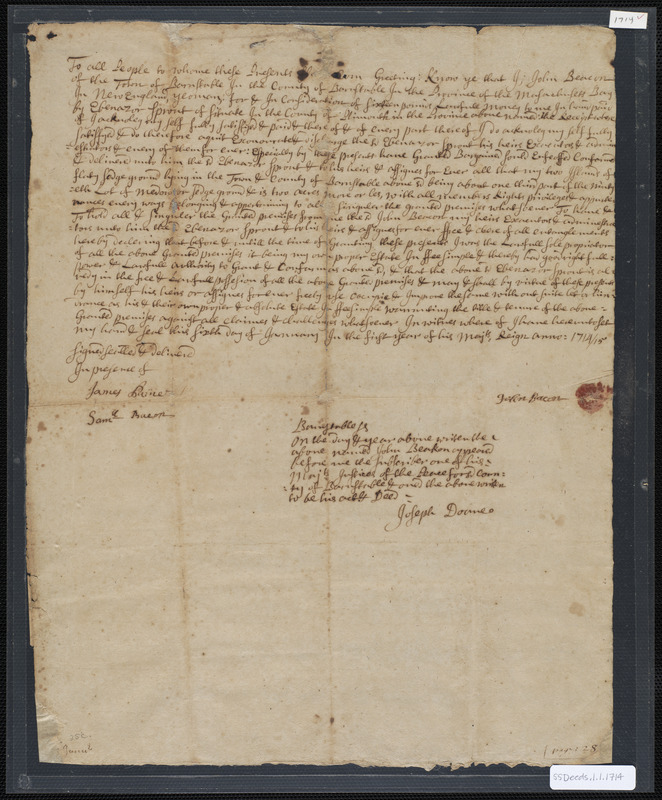 1714
To all People to whome these Presents Greeting: Know ye that I, John Beacon
of the Town of Barnstable In the County of Barnstable In the Province of the Massachusett Bay
In New England yeoman: for & In Consideration of sixteen pounds Lawfull Money to me In hand paid
by Ebenazor Sprout of Situate In the County of Plimouth in the Province above named the Receipt whereof
I acknoledg my self fully satisfied & paid & thereof & of every part thereof I do acknoledg my self fully
satisfied & do therefore aquit Exonnorate & discharge the sd Ebenazor Sprout his heirs Executors & admin
istrators & every of them for ever: Especially by these presents have Granted Bargained sould Enfeoffed Confirmed
& delivered unto him the sd Ebenazor Sprout & to his heirs & assignes for Ever all that my two
sedge ground lying in the Town & County of Barnstable above sd being about one third part of the ninty
Lot of Meadow or sedge ground & is two acres more or les with all members Rights priviledges & appurte
nances every ways belonging & appertaining to all & singuler the granted premises whatsoever: To have &
To hold all & singuler the Granted premises from me the sd John Beacon my heirs Executors & administra
tors unto him the sd Ebenazor Sprout & to his heirs & assignes for ever free & clere of all entanglements
hereby declering that before & untill the time of Granting these presents I was the Lawfull sole proprietor
of all the above Granted premises it being my own proper Estate In fee simple & thereby had good right full
power & Lawfull authority to Grant & Confirm as above sd, & that the above sd Ebenazor Sprout is al
redy in the free & Lawfull possession of all the above Granted premises & may & shall by virtue of these presents
by himself his heirs or assignes for ever freely use occupie & Improve the same with out suite let or hin
rance as his & their own proper & absolute Estate In fee simple warrenting the title & tenure of the above
Granted premises against all claimes & challenges whatsoever. In witnes where of I have hereunto set
my hand & seal this sixth day of January In the first year of his Majts Reign Anno: 1714/15
Signed sealled & deliverd
In presence of
James Paine
Saml Bacon
John Bacon
Barnstable ss
On the day & year above writen the
above named John Beakon appeared
before me the subscriber one of his
Majts Justices of the Peace for sd Coun
ty of Barnstable & owned the above writen
to be his act & Deed
Joseph Doane
252.
SSDeeds.1.1.1714